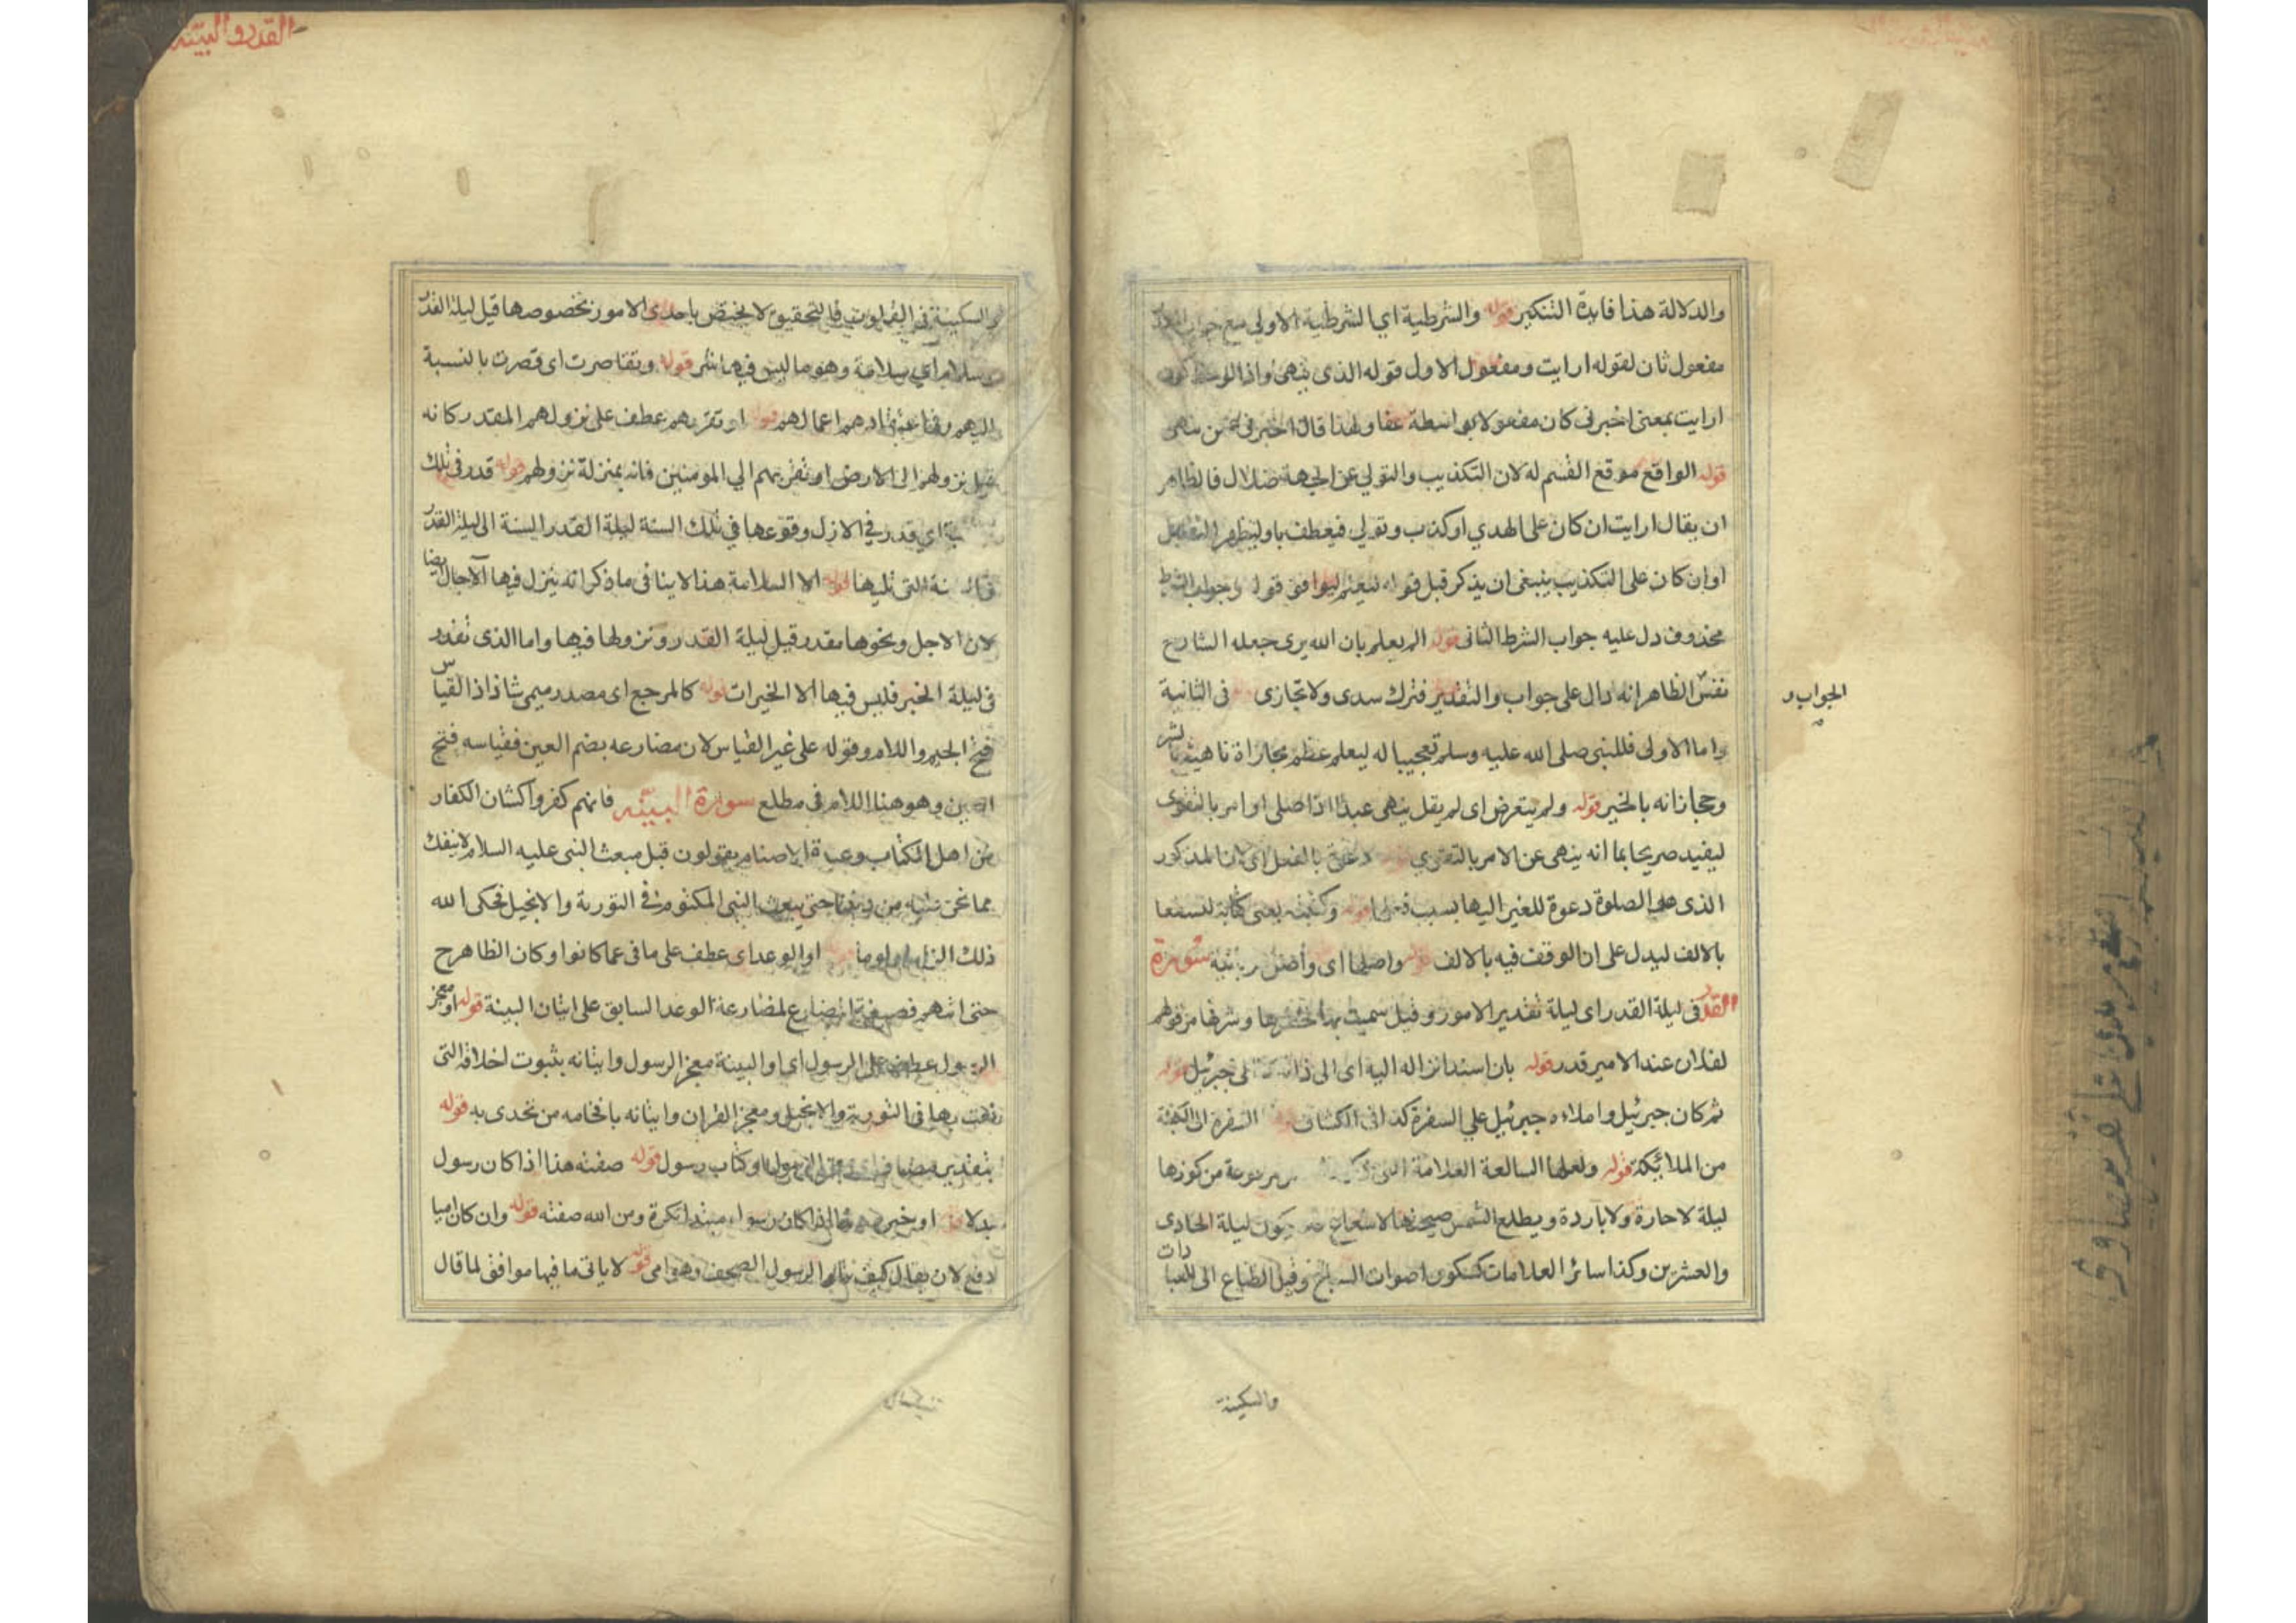 والدلالة هذا فايدة التنكير قوله والشرطية اي الشرطية الاولي مع جواب
مفعول ثان لقوله ارايت ومفعول الاول قوله الذي ينهى واذا
ارايت بمعنى اخبرنى كان مفعولا بواسطة ولهذا قال اخبرنى عن من ينهى
قوله الواقع موقع القسم له لان التكذيب والتولي عن الجهة ضلال فالظاهر
ان يقال ارايت ان كان على الهدي او كذب وتولي فيعطف باو ليظهر التقابل
او ان كان على التكذيب ينبغى ان يذكر قبل قوله ليوافق قوله وجواب الشرط
محذوف دل عليه جواب الشرط الثانى قوله الم يعلم بان الله يرى جعله الشارح
نفس الظاهر انه دال على جواب والتقدير فترك سدى ولا تجازى فى الثانية
الجواب و
واما الاولى فللنبى صلى الله عليه وسلم تعجيبا له ليعلم عظم مجازاة ناهيه بالشر
ومجازاته بالخير قوله ولم يتعرض اى لم يقل ينهى عبدا اذا صلى او امر بالتقوى
ليفيد صريحا بما انه ينهى عن الامر بالتقوي دعوة بالفعل اى ان المذكور
الذى هى الصلوة دعوة للغير اليها بسبب فعلها قوله وكتبته يعنى كتابة لنسفعا
بالالف ليدل على ان الوقف فيه بالالف واصلها اى وأصل ربانية سورة
القدر فى ليلة القدر اى ليلة تقدير الامور وقيل سميت بها لخطرها وشرفها من قولهم
لفلان عند الامير قدر قوله بان اسند انزاله اليه اى الى ذاته جبرئيل قوله
ثم كان جبرئيل واملاءه جبرئيل علي السفرة كذا فى الكشاف السفرة اى الكتبة
من الملائكة قوله ولعلها السابعة العلامة التى مرفوعة من كونها
ليلة لا حارة ولا باردة ويطلع الشمس صبيحتها لا شعاع يكون ليلة الحادى
والعشرين وكذا سائر العلامات كسكون اصوات وقيل الطباع الى العبادات
والسكينة
القدر والبينه
والسكينة فى القلوب فالتحقيق لا يختص باحدى الامور بخصوصها قيل ليلة القدر
سلام اي سلامة وهو ما ليس فيها شر قوله وتقاصرت اى قصرت بالنسبة
اليهم اعمالهم قوله او تقربهم عطف على نزولهم المقدر كانه
قيل نزولهم الى الارض او تقربهم الي المومنين فانه بمنزلة نزولهم قوله قدر فى تلك
اي قدر في الازل وقوعها في تلك السنة ليلة القدر السنة الى ليلة القدر
التى تليها قوله الا السلامة هذا لا ينافى ما ذكر انه ينزل فيها الآجال ايضا
لان الاجل ونحوها مقدر قبل ليلة القدر ونزولها فيها واما الذى تقدر
فى ليلة الخير فليس فيها الا الخيرات قوله كالمرجع اى مصدر ميمى شاذ اذ القياس
فتح الجيم واللام وقوله على غير القياس لان مضارعه بضم العين فقياسه فتح
العين وهو هنا اللام فى مطلع سورة البينه فانهم كفروا كشان الكفار
من اهل الكتاب وعبدة الاصنام يقولون قبل مبعث النبى عليه السلام لا ننفك
مما نحن عليه من ديننا حتى يبعث النبى المكتوب في التورية والانجيل فحكى الله
ذلك او الوعد اى عطف على ما فى عما كانوا وكان الظاهر ح
حتى اتتهم فصيغة المضارع لمضارعة الوعد السابق على اتيان البينة قوله او معجز
الرسول عطف على الرسول اى او البينة معجز الرسول واتيانه بثبوت اخلاقه التى
نعت بها فى التورية والانجيل ومعجز القران واتيانه بافحامه من تحدى به قوله
بتقدير مضاف اى وحى الرسول او كتاب رسول قوله صفته هذا اذا كان رسول
بدلا قوله او خبره هذا اذا كان رسول مبتدا نكرة ومن الله صفته قوله وان كان اميا
دفع لان يقال كيف يتلو الرسول الصحف وهو امى قوله لا ياتى ما فيها موافق لما قال